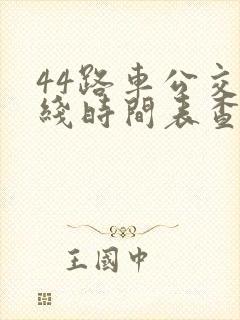 44路車公交
綫時間表查
王國中